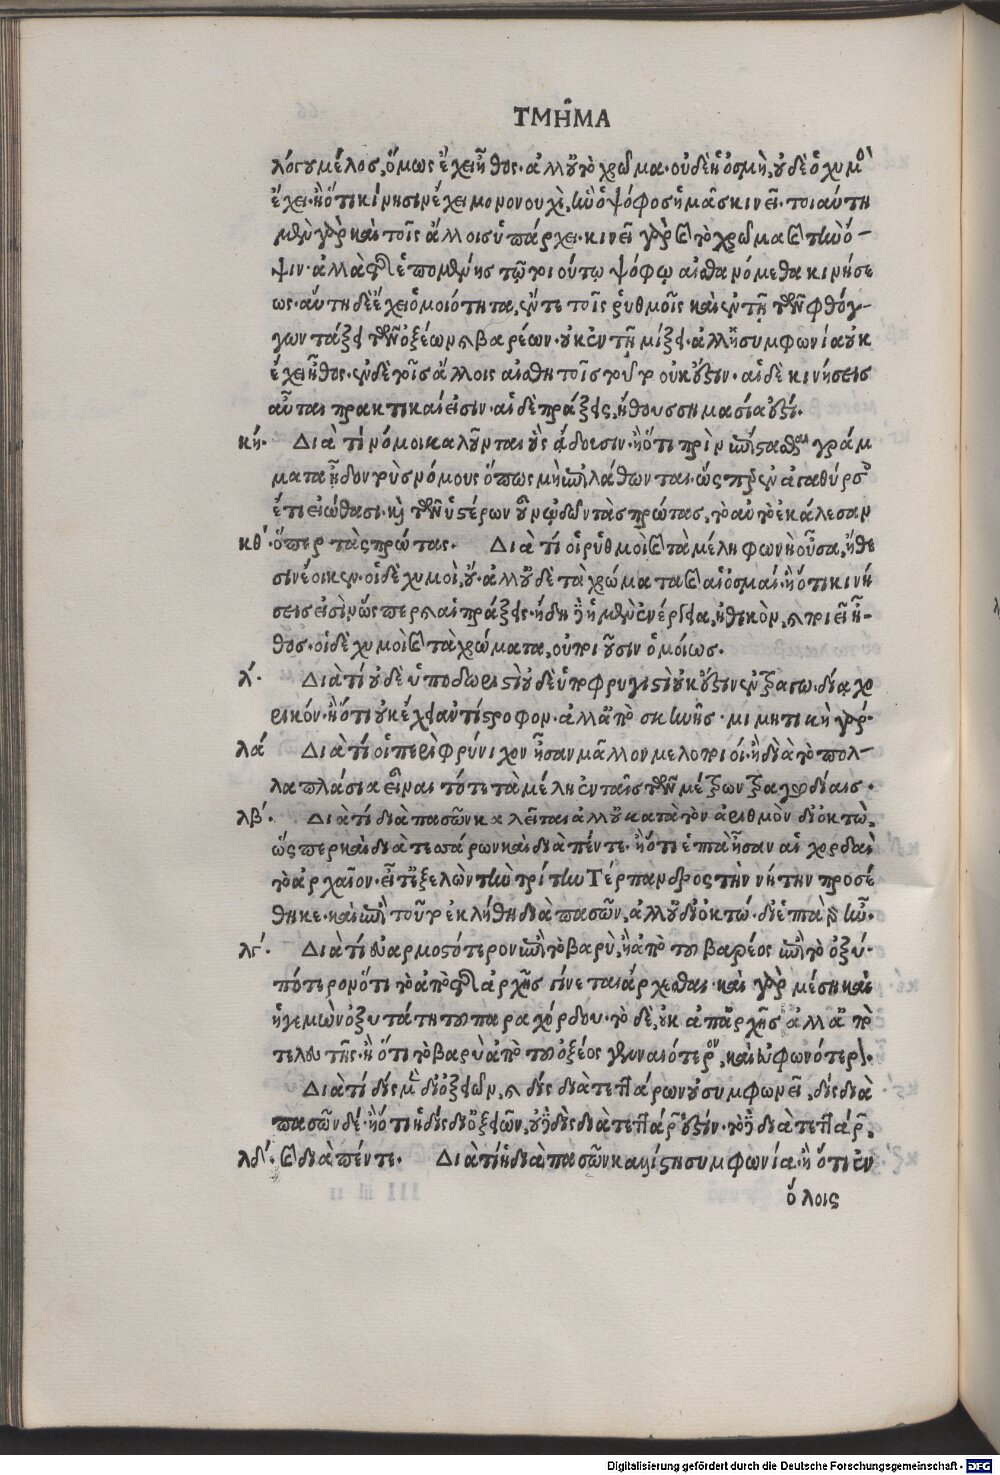 ΤΜΗ͂ΜΑ
λόγου μέλος, ὅμως ἔχει ἦθος· ἀλλ' οὐ τὸ χρῶμα· οὐδὲ ἡ ὀσμὴ, οὐδὲ ὁ χυμὸς
ἔχει· ἢ ὅτι κίνησιν ἔχει μονονουχὶ, ἣν ὁ ψόφος ἡμᾶς κινεῖ· τοιαύτη
μὲν γὰρ καὶ τοῖς ἄλλοις ὑπάρχει· κινεῖ γὰρ καὶ τὸ χρῶμα καὶ τὴν ὄ-
ψιν· ἀλλὰ τῆς ἑπομένης τῷ τοιούτῳ ψόφῳ αἰσθανόμεθα κινήσε
ως· αὕτη δὲ ἔχει ὁμοιότητα, ἔν τε τοῖς ῥυθμοῖς καὶ ἐν τῇ τῶν φθόγ-
γων τάξει τῶν ὀξέων καὶ βαρέων· οὐκ ἐν τῇ μίξει· ἀλλ' ἡ συμφωνία οὐκ
ἔχει ἦθος· ἐν δὲ τοῖς ἄλλοις αἰσθητοῖς τοῦτο οὐκ ἔστιν· αἱ δὲ κινήσεις
αὗται πρακτικαί εἰσιν· αἱ δὲ πράξεις, ἤθους σημασία ἐστί·
κή· Διὰ τί νόμοι καλοῦνται οὓς ᾄδουσιν· ἢ ὅτι πρὶν ἐπίστασθαι γράμ
ματα ᾖδον τοὺς νόμους ὅπως μὴ ἐπιλάθωνται· ὥσπερ ἐν ἀγαθύρσοις
ἔτι εἰώθασι· καὶ τῶν ὑστέρων οὖν ᾠδῶν τὰς πρώτας, τὸ αὐτὸ ἐκάλεσαν
κθ· ὅπερ τὰς πρώτας· Διὰ τί οἱ ῥυθμοὶ καὶ τὰ μέλη φωνὴ οὖσα, ἤθε
σιν ἔοικεν· οἱ δὲ χυμοὶ, οὔ· ἀλλ' οὐδὲ τὰ χρώματα καὶ αἱ ὀσμαί· ἢ ὅτι κινή
σεις εἰσὶν ὥσπερ καὶ αἱ πράξεις· ἤδη δὲ ἡ μὲν ἐνέργεια, ἠθικὸν, καὶ ποιεῖ ἦ-
θος· οἱ δὲ χυμοὶ καὶ τὰ χρώματα, οὐ ποιοῦσιν ὁμοίως·
λ· Διὰ τί οὐδὲ ὑποδωριστὶ οὐδὲ ὑποφρυγιστὶ οὐκ ἔστιν ἐν τραγῳδίᾳ χο
ρικόν· ἢ ὅτι οὐκ ἔχει ἀντίστροφον· ἀλλ' ἀπὸ σκηνῆς· μιμητικὴ γάρ·
λά Διὰ τί οἱ περὶ φρύνιχον ἦσαν μᾶλλον μελοποιοί· ἢ διὰ τὸ πολ-
λαπλάσια εἶναι τότε τὰ μέλη ἐν ταῖς τῶν μέτρων τραγῳδίαις·
λβ· Διὰ τί διὰ πασῶν καλεῖται ἀλλ' οὐ κατὰ τὸν ἀριθμὸν δι' ὀκτὼ,
ὥσπερ καὶ διὰ τεσσάρων καὶ διὰ πέντε· ἢ ὅτι ἑπτὰ ἦσαν αἱ χορδαὶ
τὸ ἀρχαῖον· εἶτ' ἐξελὼν τὴν τρίτην Τέρπανδρος τὴν νήτην προσέ
θηκε· καὶ ἐπὶ τούτου ἐκλήθη διὰ πασῶν, ἀλλ' οὐ δι' ὀκτώ· δι' ἑπτὰ γὰρ ἦν·
λγ· Διὰ τί εὐαρμοστότερον ἐπὶ τὸ βαρὺ, ἢ ἀπὸ τοῦ βαρέος ἐπὶ τὸ ὀξύ·
πότερον ὅτι τὸ ἀπὸ τῆς ἀρχῆς γίνεται ἄρχεσθαι· καὶ γὰρ μέση καὶ
ἡγεμὼν ὀξυτάτη τοῦ παραχόρδου· τὸ δὲ, ἐκ ἀπ' ἀρχῆς ἀλλ' ἀπὸ
τελευτῆς· ἢ ὅτι τὸ βαρὺ ἀπὸ τοῦ ὀξέος γενναιότερον, καὶ εὐφωνότερον·
Διὰ τί δὶς μὲν δι' ὀξειῶν, καὶ δὶς διὰ τεττάρων οὐ συμφωνεῖ, δὶς διὰ
πασῶν δέ· ἢ ὅτι ἡ δὶς δι' ὀξειῶν, οὐδὲ δὶς διὰ τεττάρων ἐστίν· τὸ δὲ διὰ τεττάρων,
λδ· καὶ διὰ πέντε· Διὰ τί ἡ διὰ πασῶν καλλίστη συμφωνία· ἢ ὅτι ἐν
ὅλοις
Digitalisierung gefördert durch die Deutsche Forschungsgemeinschaft · DFG